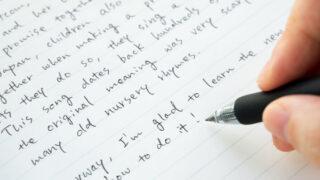 and her
promise together
Japan, children also
together when they sing a p
As they do so, they
This song dates back hundreds o
the original meaning was very scary
many old nursery rhymes.
yway, I'm glad to learn the new
how to do it!